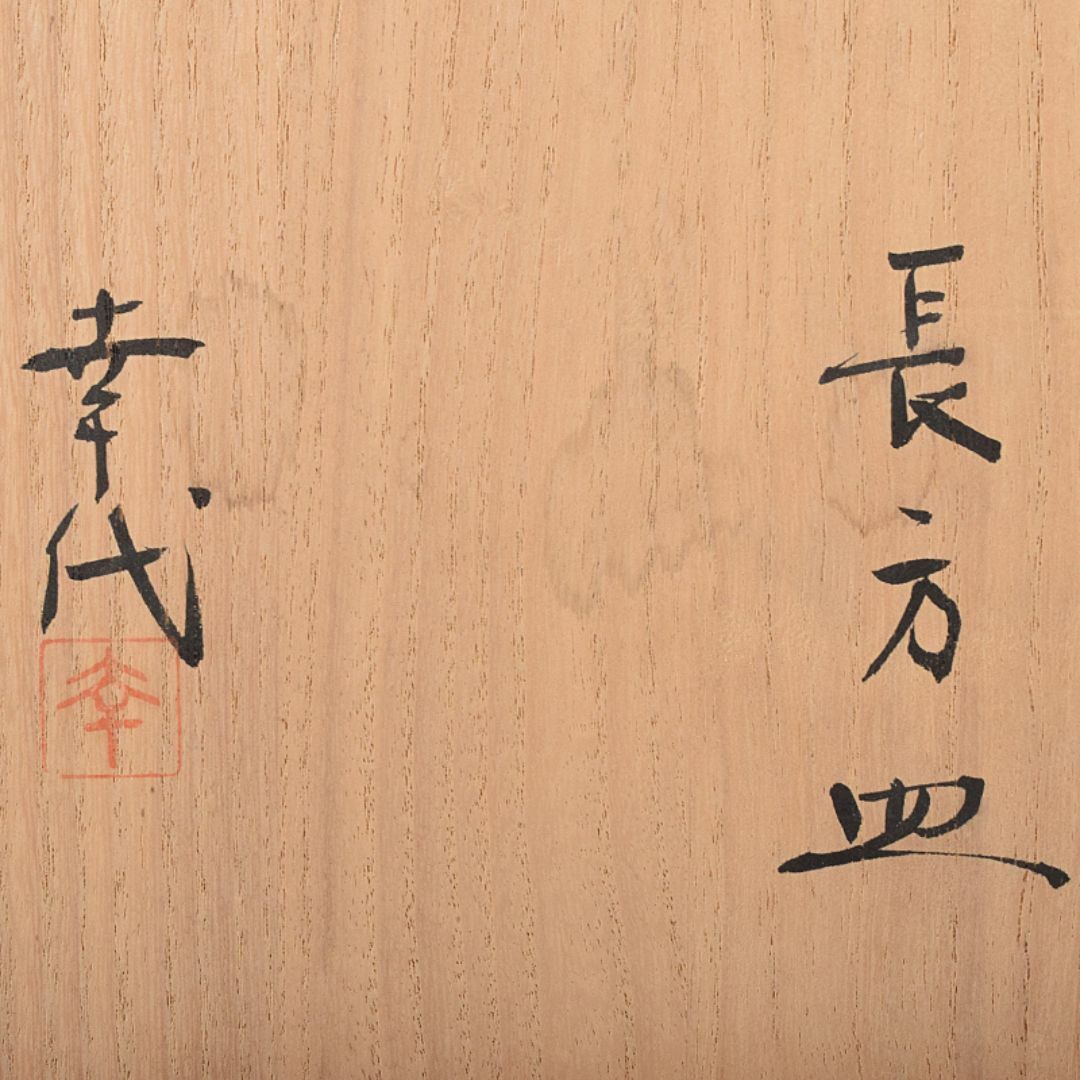 長方皿
幸代
幸